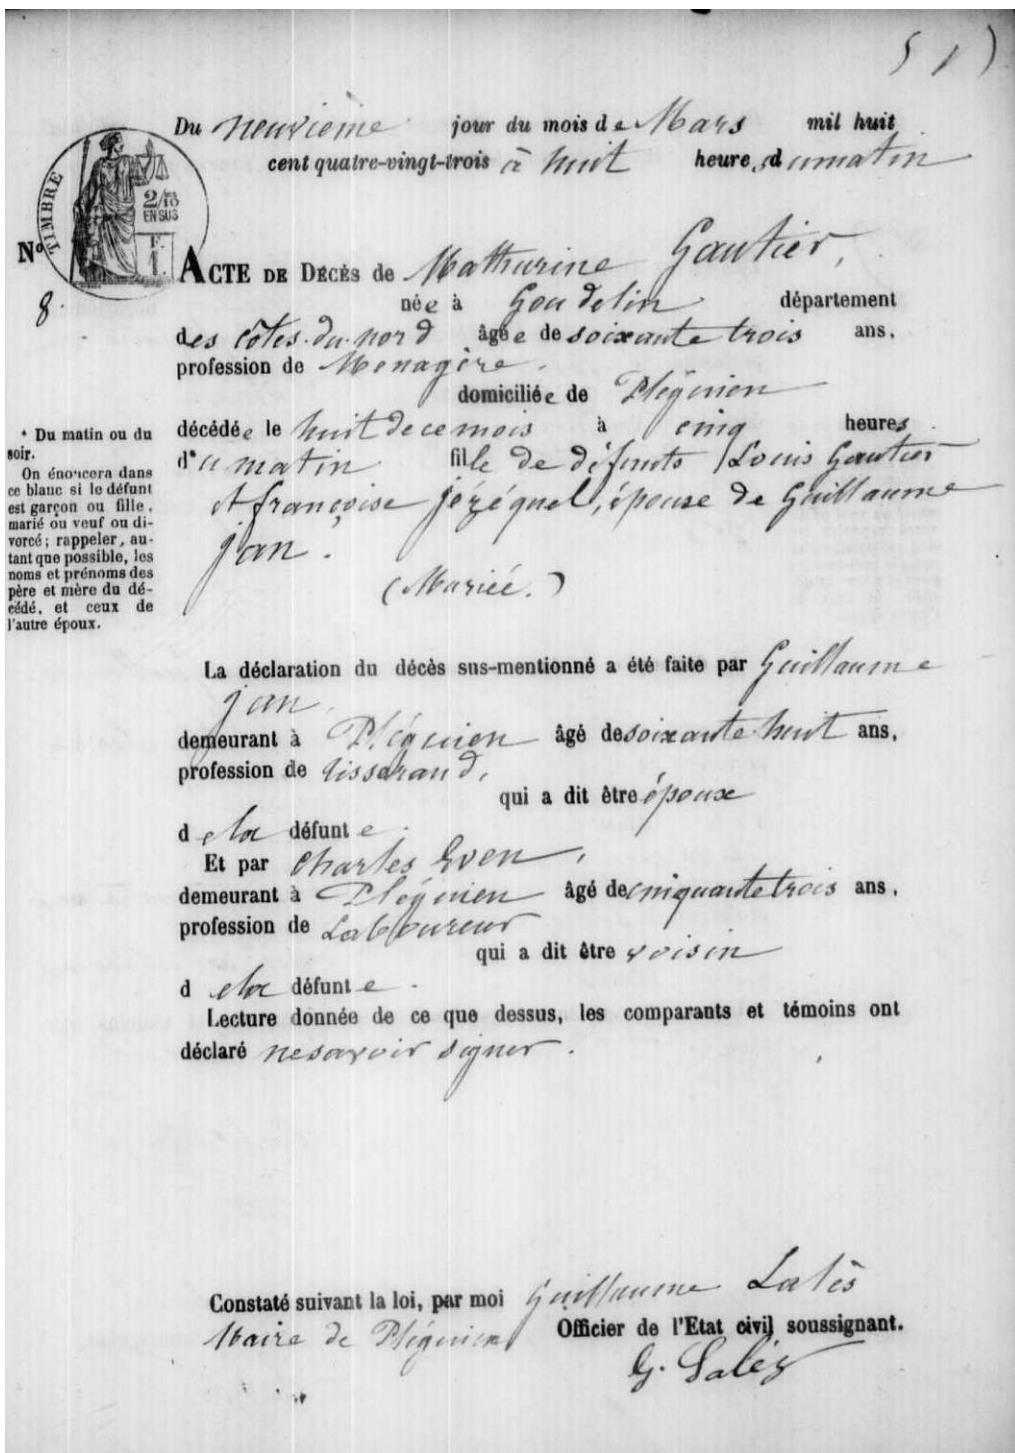 5 1)
Du neuvième jour du mois de Mars mil huit
cent quatre-vingt-trois à huit heures du matin
TIMBRE
2/10
EN SUS
F.
1.
No
8.
ACTE DE DÉCÈS de Mathurine Gautier,
née à Goudelin département
des côtes-du-nord âgée de soixante trois ans,
profession de Menagère.
domiciliée de Pléguien
décédée le huit de ce mois à cinq heures
d'u matin fille de défunts Louis Gautier
et françoise jézéquel, épouse de Guillaume
jan.
(Mariée.)
* Du matin ou du
soir.
On énoncera dans
ce blanc si le défunt
est garçon ou fille,
marié ou veuf ou di-
vorcé; rappeler, au-
tant que possible, les
noms et prénoms des
père et mère du dé-
cédé, et ceux de
l'autre époux.
La déclaration du décès sus-mentionné a été faite par Guillaume
jan,
demeurant à Pléguien âgé de soixante huit ans,
profession de tisserand,
qui a dit être époux
de la défunte.
Et par Charles Even,
demeurant à Pléguien âgé de cinquante trois ans,
profession de Laboureur
qui a dit être voisin
de la défunte.
Lecture donnée de ce que dessus, les comparants et témoins ont
déclaré ne savoir signer.
Constaté suivant la loi, par moi Guillaume Salès
Maire de Pléguien Officier de l'Etat civil soussignant.
G. Salès